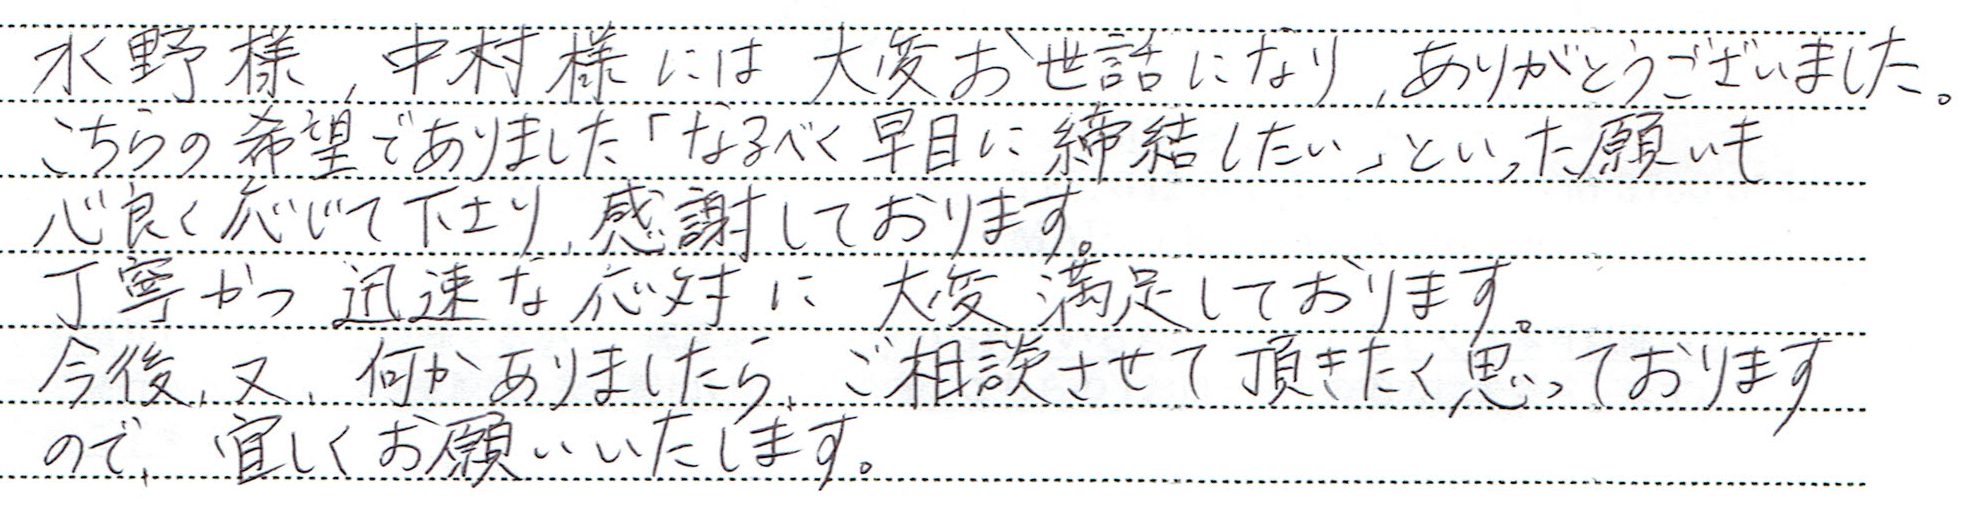 水野様、中村様には大変お世話になり、ありがとうございました。
こちらの希望でありました「なるべく早目に締結したい」といった願いも
心良く応じて下さり、感謝しております。
丁寧かつ迅速な応対に大変満足しております。
今後、又、何かありましたら、ご相談させて頂きたく思っております
ので、宜しくお願いいたします。